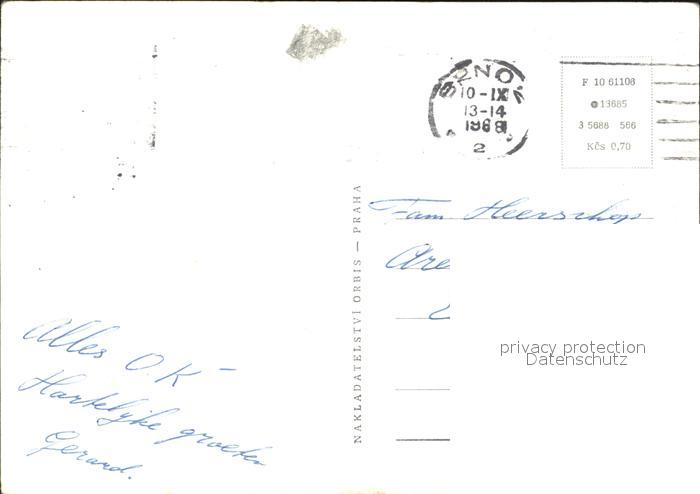 10-IX
13-14
1968
2
F 10 61106
13685
3 5688 566
Kčs 0,70
NAKLADATELSTVÍ ORBIS — PRAHA
Fam Heerschop
Are
privacy protection
Datenschutz
Alles O.K –
Hartelijke groeten
Gerard.